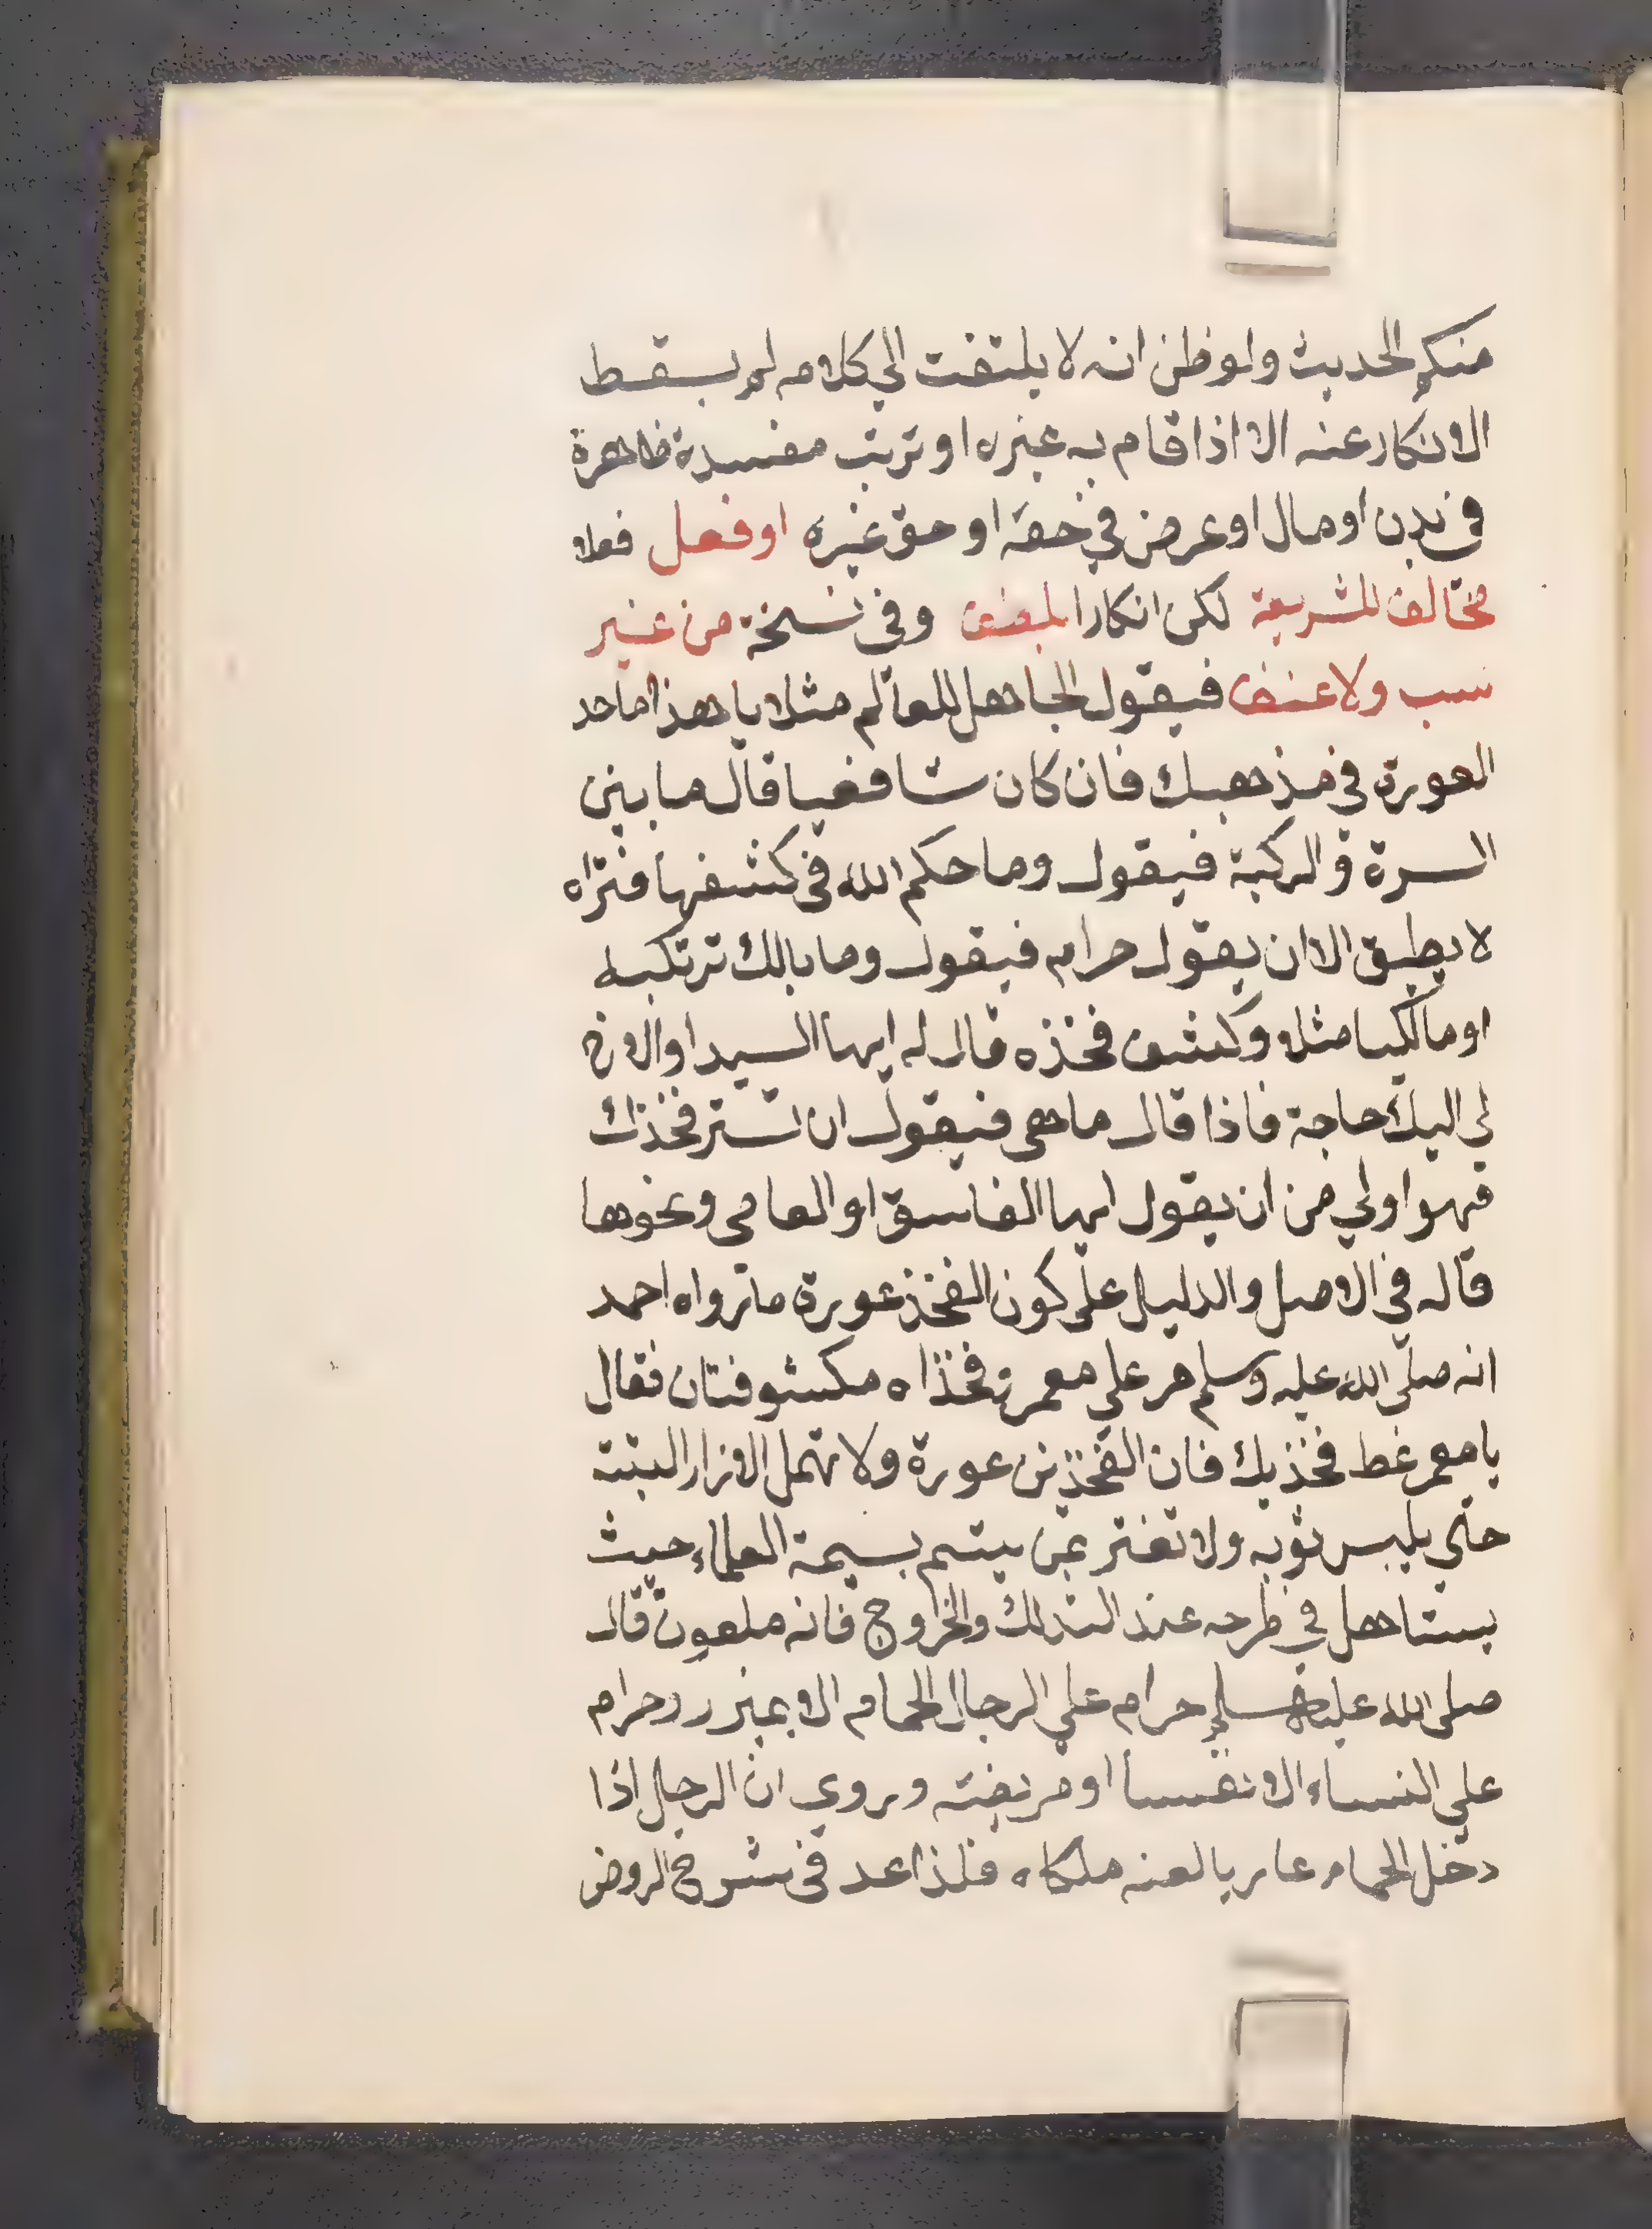 منكم الحديث ولو ظن انه لا يلتفت الي كلامه لم يسقط
الانكار عنه الا اذا قام به غيره او ترتب مفسدة ظاهرة
في بدن او مال او عرض في حقه او حق غيره او فعل فعلا
مخالف للشريعة لكن انكارا بلطف وفي نسخة من غير
سب ولا عنف فيقول الجاهل للعالم مثلا يا هذا ما حد
العورة في مذهبك فان كان شافعيا قال ما بين
السرة والركبة فيقول وما حكم الله في كشفها فتراه
لا يطيق الا ان يقول حرام فيقول وما بالك ترتكبه
او مالكيا مثلا وكشف فخذه قال له ايها السيد او الاخ
لي اليك حاجة فاذا قال ما هي فيقول ان تستر فخذك
فهو اولي من ان يقول ايها الفاسق او العامي ونحوها
قاله في الاصل والدليل علي كون الفخذ عورة ما رواه احمد
انه صلي الله عليه وسلم مر علي معمر وفخذاه مكشوفتان فقال
يا معمر غط فخذيك فان الفخذين عورة ولا تهمل الازار البتة
حتي يلبس ثوبه ولا تغتر بمن يتسم بسيمة العلماء حيث
يستاهل في طرحه عند التدلك والخروج فانه ملعون قال
صلي الله عليه وسلم حرام علي الرجال الحمام الا بميزر وحرام
علي النساء الا نفسا او مريضة وروي ان الرجل اذا
دخل الحمام عاريا لعنه ملكاه فلذا عد في شرح الروض